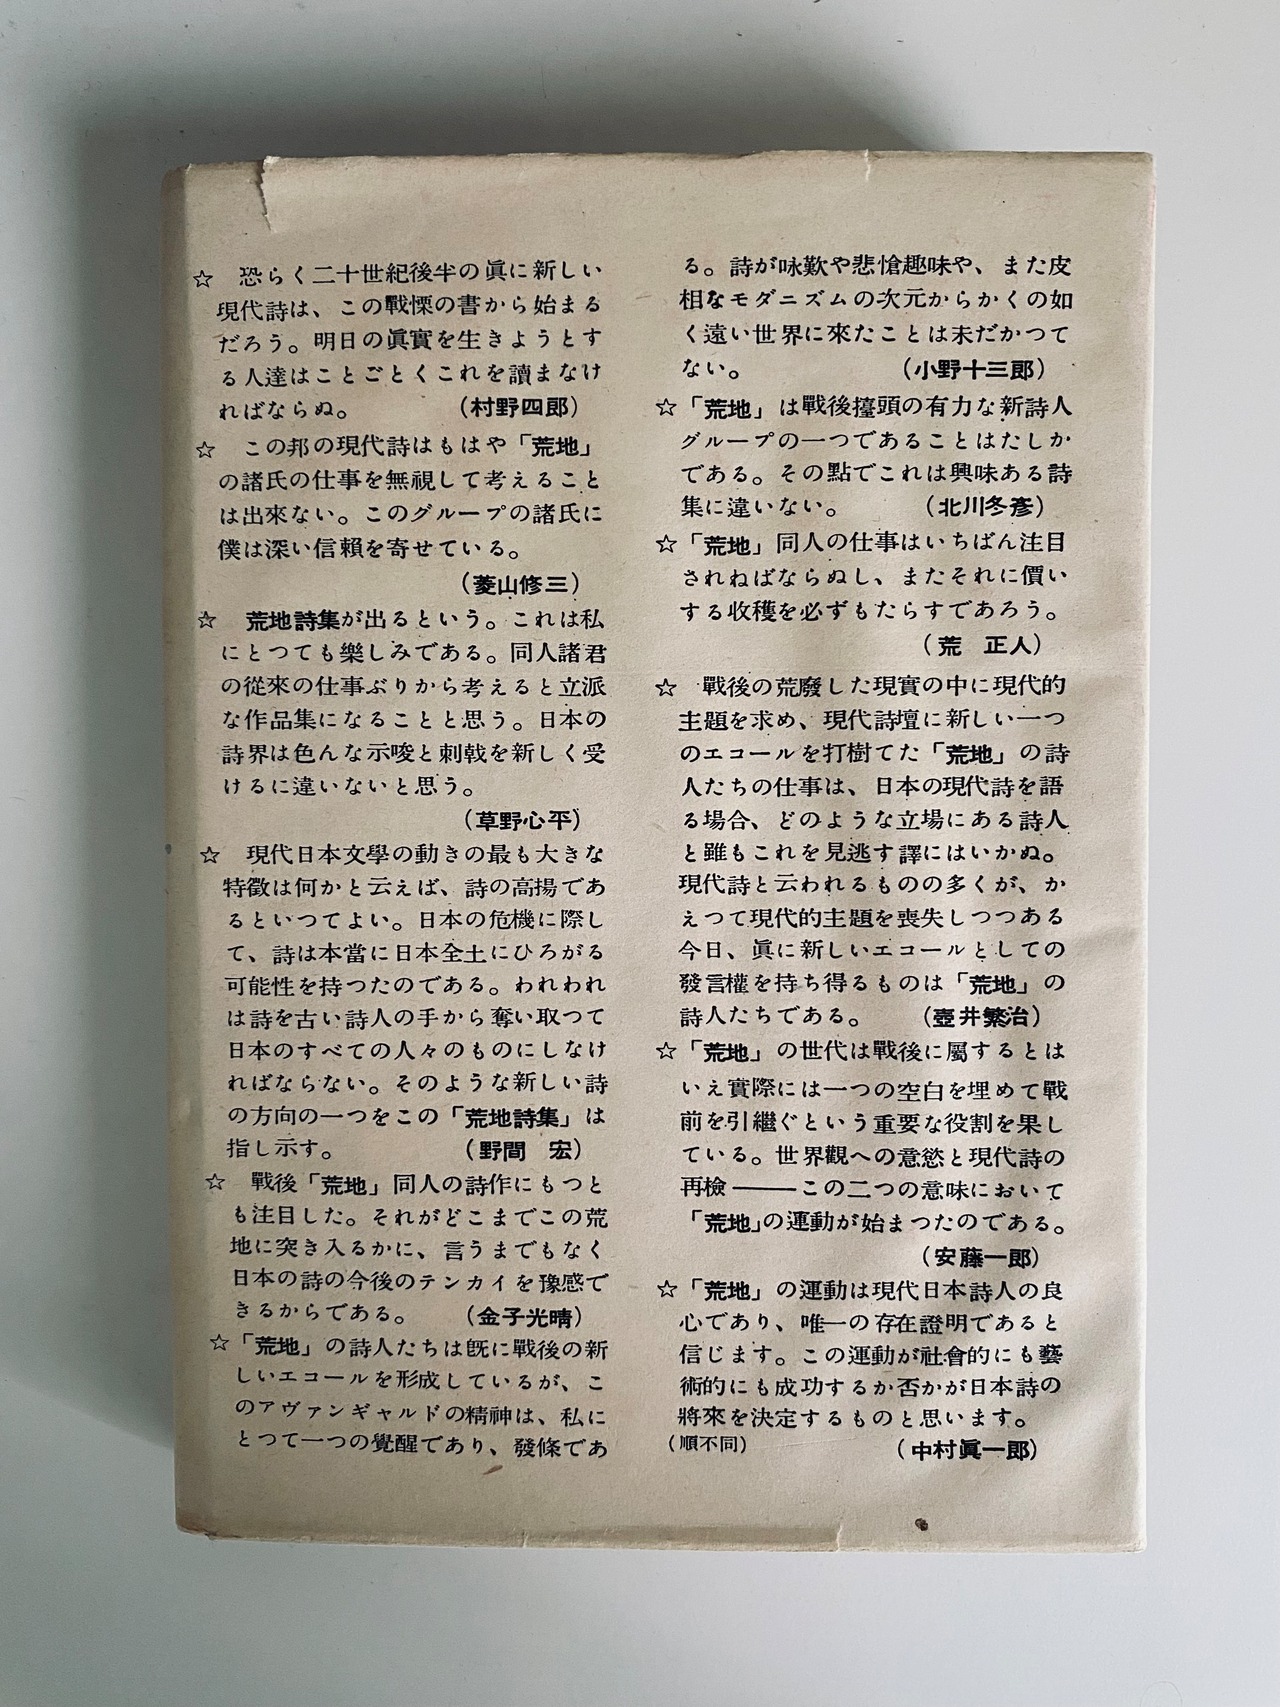 ☆　恐らく二十世紀後半の眞に新しい
現代詩は、この戰慄の書から始まる
だろう。明日の眞實を生きようとす
る人達はことごとくこれを讀まなけ
ればならぬ。　（村野四郎）
☆　この邦の現代詩はもはや「荒地」
の諸氏の仕事を無視して考えること
は出來ない。このグループの諸氏に
僕は深い信賴を寄せている。
（菱山修三）
☆　荒地詩集が出るという。これは私
にとつても樂しみである。同人諸君
の從來の仕事ぶりから考えると立派
な作品集になることと思う。日本の
詩界は色んな示唆と刺戟を新しく受
けるに違いないと思う。
（草野心平）
☆　現代日本文學の動きの最も大きな
特徵は何かと云えば、詩の高揚であ
るといつてよい。日本の危機に際し
て、詩は本當に日本全土にひろがる
可能性を持つたのである。われわれ
は詩を古い詩人の手から奪い取つて
日本のすべての人々のものにしなけ
ればならない。そのような新しい詩
の方向の一つをこの「荒地詩集」は
指し示す。　（野間　宏）
☆　戰後「荒地」同人の詩作にもつと
も注目した。それがどこまでこの荒
地に突き入るかに、言うまでもなく
日本の詩の今後のテンカイを豫感で
きるからである。　（金子光晴）
☆「荒地」の詩人たちは既に戰後の新
しいエコールを形成しているが、こ
のアヴァンギャルドの精神は、私に
とつて一つの覺醒であり、發條であ
る。詩が咏歎や悲愴趣味や、また皮
相なモダニズムの次元からかくの如
く遠い世界に來たことは未だかつて
ない。　（小野十三郎）
☆「荒地」は戰後擡頭の有力な新詩人
グループの一つであることはたしか
である。その點でこれは興味ある詩
集に違いない。　（北川冬彥）
☆「荒地」同人の仕事はいちばん注目
されねばならぬし、またそれに價い
する收穫を必ずもたらすであろう。
（荒　正人）
☆　戰後の荒廢した現實の中に現代的
主題を求め、現代詩壇に新しい一つ
のエコールを打樹てた「荒地」の詩
人たちの仕事は、日本の現代詩を語
る場合、どのような立場にある詩人
と雖もこれを見逃す譯にはいかぬ。
現代詩と云われるものの多くが、か
えつて現代的主題を喪失しつつある
今日、眞に新しいエコールとしての
發言權を持ち得るものは「荒地」の
詩人たちである。　（壺井繁治）
☆「荒地」の世代は戰後に屬するとは
いえ實際には一つの空白を埋めて戰
前を引繼ぐという重要な役割を果し
ている。世界觀への意慾と現代詩の
再檢――この二つの意味において
「荒地」の運動が始まつたのである。
（安藤一郎）
☆「荒地」の運動は現代日本詩人の良
心であり、唯一の存在證明であると
信じます。この運動が社會的にも藝
術的にも成功するか否かが日本詩の
將來を決定するものと思います。
（順不同）　（中村眞一郎）